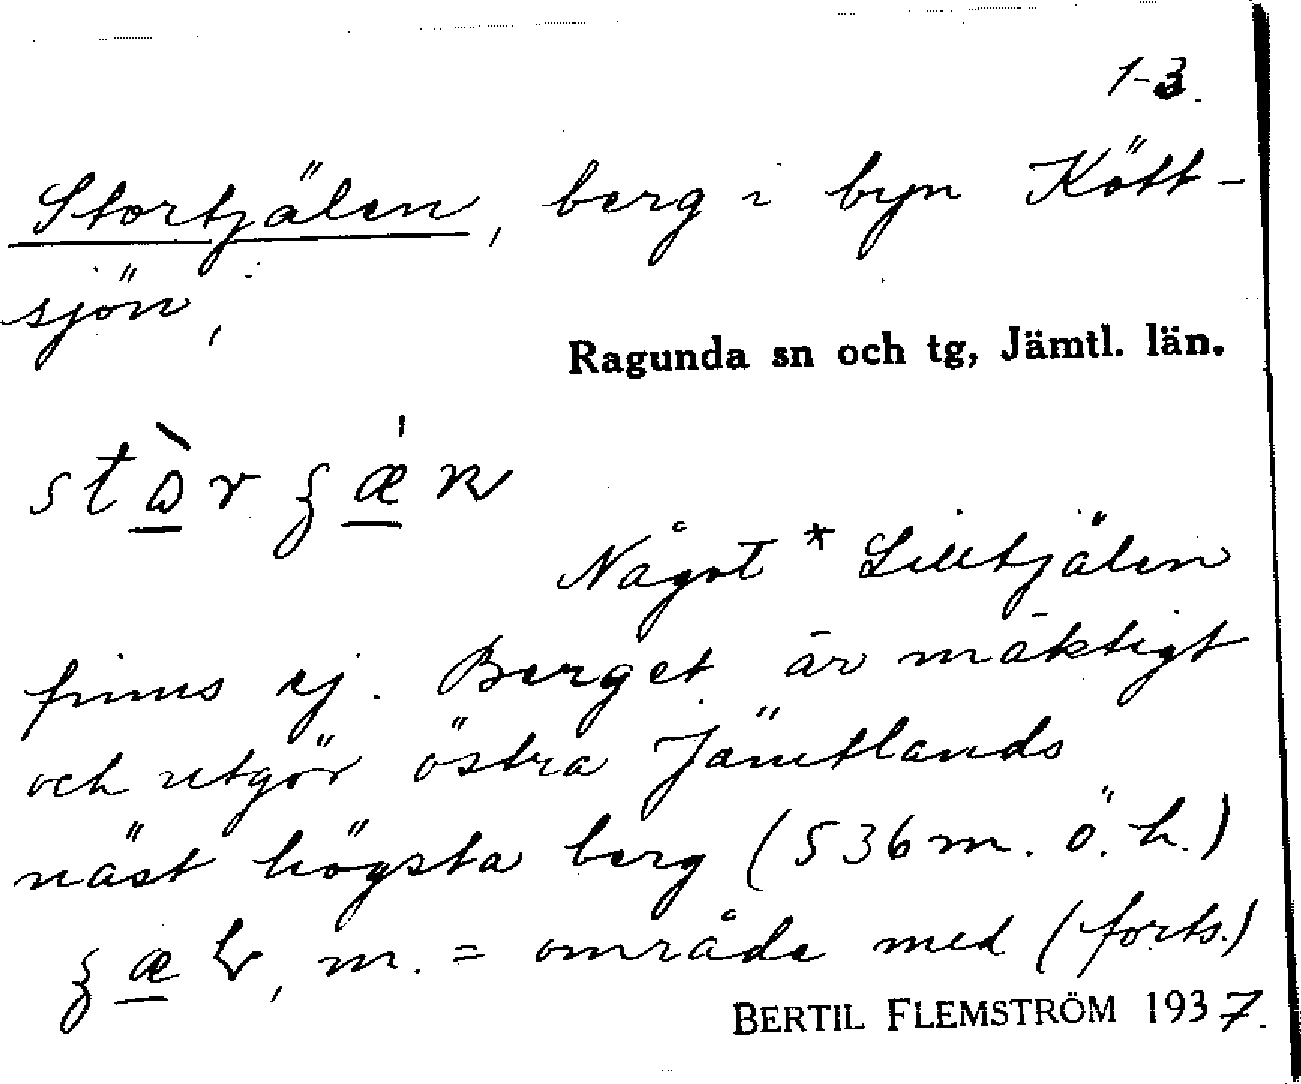 1-3.
Stortjälen, berg i byn Kött-
sjön,
Ragunda sn och tg, Jämtl. län.
Något * Lilltjälen
finns ej. Berget är mäktigt
och utgör östra Jämtlands
näst högsta berg (536 m. ö. h.)
m. = område med (forts.)
BERTIL FLEMSTRÖM 1937.